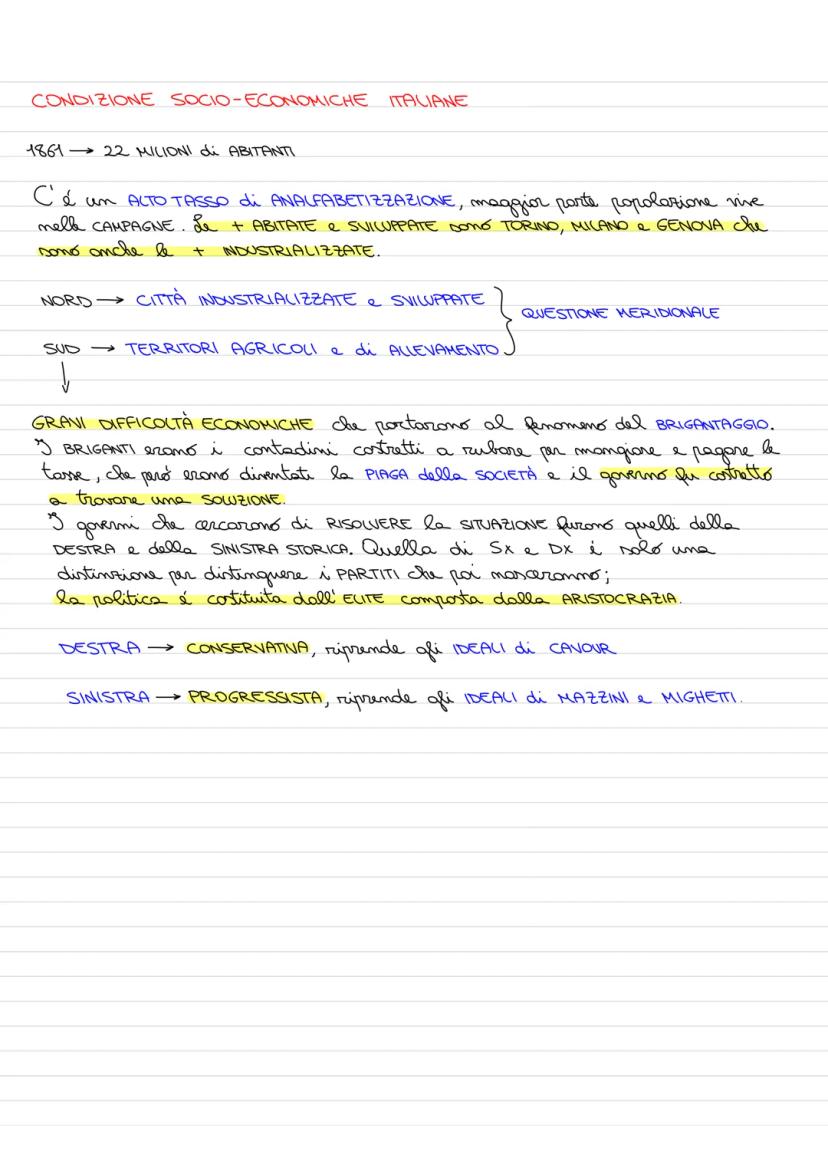 CONDIZIONE SOCIO-ECONOMICHE ITALIANE
1861 → 22 MILIONI di ABITANTI
C'é un ALTO TASSO di ANALFABETIZZAZIONE, maggior parte popolazione vive
nelle CAMPAGNE. Le + ABITATE e SVILUPPATE sono TORINO, MILANO e GENOVA che
sono anche le + INDUSTRIALIZZATE.
NORD → CITTÀ INDUSTRIALIZZATE e SVILUPPATE
QUESTIONE MERIDIONALE
SUD → TERRITORI AGRICOLI e di ALLEVAMENTO
↓
GRAVI DIFFICOLTÀ ECONOMICHE che portarono al fenomeno del BRIGANTAGGIO.
I BRIGANTI erano i contadini costretti a rubare per mangiare e pagare le
tasse, che peró erano diventati la PIAGA della SOCIETÀ e il governo fu costretto
a trovare una SOLUZIONE.
I governi che cercarono di RISOLVERE la SITUAZIONE furono quelli della
DESTRA e della SINISTRA STORICA. Quella di Sx e Dx é solo una
distinzione per distinguere i PARTITI che poi nasceranno;
la politica é costituita dall'ELITE composta dalla ARISTOCRAZIA.
DESTRA → CONSERVATIVA, riprende gli IDEALI di CAVOUR
SINISTRA → PROGRESSISTA, riprende gli IDEALI di MAZZINI e MIGHETTI.